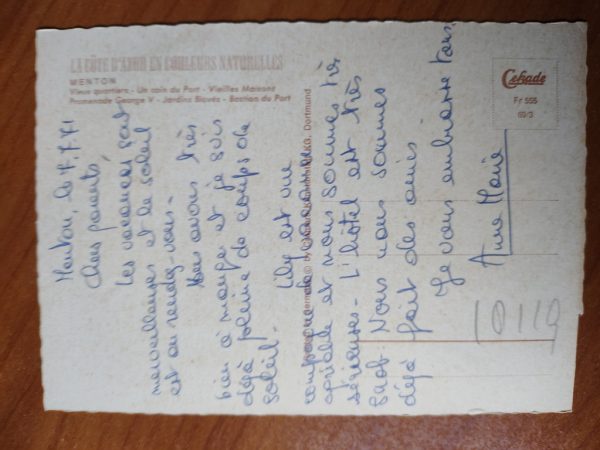 LA CÔTE D'AZUR EN COULEURS NATURELLES
MENTON
Vieux quartiers - Un coin du Port - Vieilles Maisons
Promenade George V - Jardins Biovès - Bastion du Port
Cekade
Fr 555
60/3
Menton, le 7.7.71
Chers parents,
Les vacances sont
merveilleuses et le soleil
est au rendez-vous -
Nous avons très
bien à manger et je suis
déjà pleine de coups de
soleil.
Lily est une
compagne de
agréable et nous sommes très
sérieuses - L'hôtel est très
bien. Nous nous sommes
déjà fait des amies
Je vous embrasse tous,
Anne Marie
Dortmund
10119